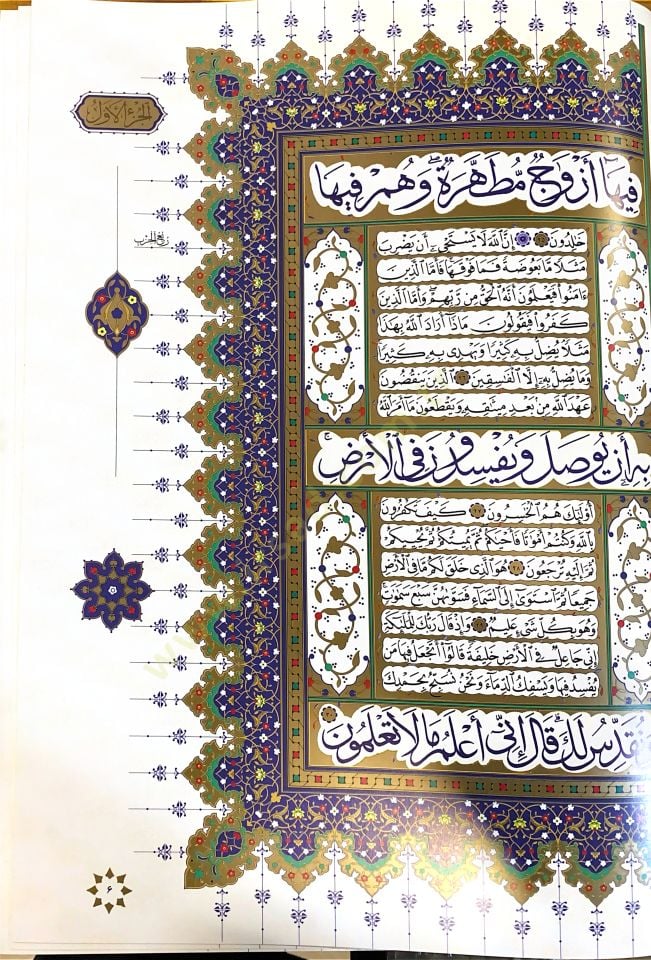 الجزء الأول
ربع الحزب
فِيهَآ أَزْوَٰجٌ مُّطَهَّرَةٌ ۖ وَهُمْ فِيهَا
خَٰلِدُونَ ٢٥ إِنَّ ٱللَّهَ لَا يَسْتَحْىِۦٓ أَن يَضْرِبَ
مَثَلًا مَّا بَعُوضَةً فَمَا فَوْقَهَا فَأَمَّا ٱلَّذِينَ
ءَامَنُوا۟ فَيَعْلَمُونَ أَنَّهُ ٱلْحَقُّ مِن رَّبِّهِمْ ۖ وَأَمَّا ٱلَّذِينَ
كَفَرُوا۟ فَيَقُولُونَ مَاذَآ أَرَادَ ٱللَّهُ بِهَٰذَا
مَثَلًا يُضِلُّ بِهِۦ كَثِيرًا وَيَهْدِى بِهِۦ كَثِيرًا
وَمَا يُضِلُّ بِهِۦٓ إِلَّا ٱلْفَٰسِقِينَ ٢٦ ٱلَّذِينَ يَنقُضُونَ
عَهْدَ ٱللَّهِ مِنۢ بَعْدِ مِيثَٰقِهِۦ وَيَقْطَعُونَ مَآ أَمَرَ ٱللَّهُ
بِهِۦٓ أَن يُوصَلَ وَيُفْسِدُونَ فِى ٱلْأَرْضِ ۚ
أُو۟لَٰٓئِكَ هُمُ ٱلْخَٰسِرُونَ ٢٧ كَيْفَ تَكْفُرُونَ
بِٱللَّهِ وَكُنتُمْ أَمْوَٰتًا فَأَحْيَٰكُمْ ثُمَّ يُمِيتُكُمْ ثُمَّ يُحْيِيكُمْ
ثُمَّ إِلَيْهِ تُرْجَعُونَ ٢٨ هُوَ ٱلَّذِى خَلَقَ لَكُم مَّا فِى ٱلْأَرْضِ
جَمِيعًا ثُمَّ ٱسْتَوَىٰٓ إِلَى ٱلسَّمَآءِ فَسَوَّىٰهُنَّ سَبْعَ سَمَٰوَٰتٍ ۚ
وَهُوَ بِكُلِّ شَىْءٍ عَلِيمٌ ٢٩ وَإِذْ قَالَ رَبُّكَ لِلْمَلَٰٓئِكَةِ
إِنِّى جَاعِلٌ فِى ٱلْأَرْضِ خَلِيفَةً ۖ قَالُوٓا۟ أَتَجْعَلُ فِيهَا مَن
يُفْسِدُ فِيهَا وَيَسْفِكُ ٱلدِّمَآءَ وَنَحْنُ نُسَبِّحُ بِحَمْدِكَ
وَنُقَدِّسُ لَكَ ۖ قَالَ إِنِّىٓ أَعْلَمُ مَا لَا تَعْلَمُونَ ٣٠
٦